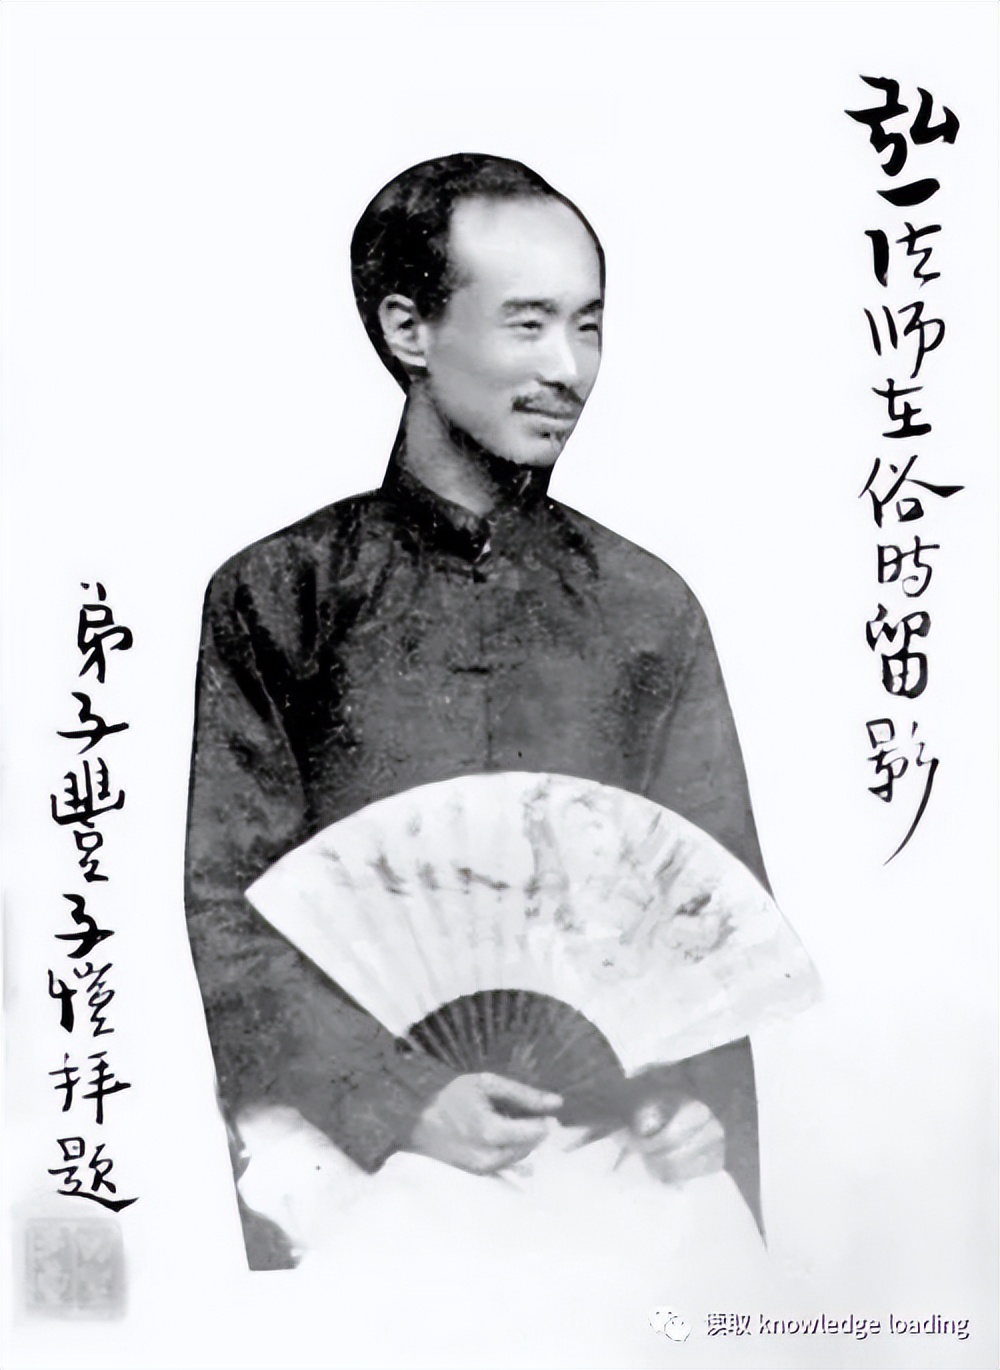 弘一法师在俗時留影
弟子豐子愷拝題
读取 knowledge loading